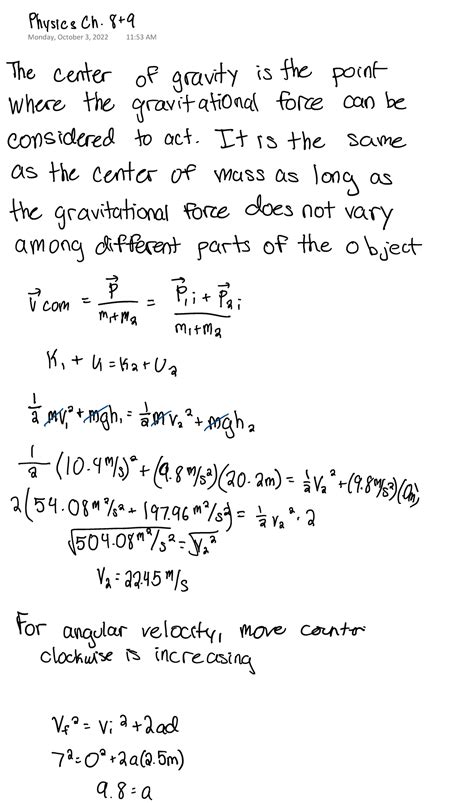 Physics Ch. 8+9
Monday, October 3, 2022 11:53 AM
The center of gravity is the point
where the gravitational force can be
considered to act. It is the same
as the center of mass as long as
the gravitational force does not vary
among different parts of the object
v⃗ com = P⃗/(m₁+m₂) = (P⃗₁i + P⃗₂i)/(m₁+m₂)
K₁ + U = K₂ + U₂
½ mv₁² + mgh₁ = ½ mv₂² + mgh₂
½ (10.4 m/s)² + (9.8 m/s²)(20.2m) = ½ v₂² + (9.8 m/s²)(0m)
2(54.08 m²/s² + 197.96 m²/s²) = ½ v₂² · 2
√504.08 m²/s² = √v₂²
V₂ = 22.45 m/s
For angular velocity, move counter
clockwise is increasing
Vf² = Vi² + 2ad
7² = 0² + 2a(2.5m)
9.8 = a